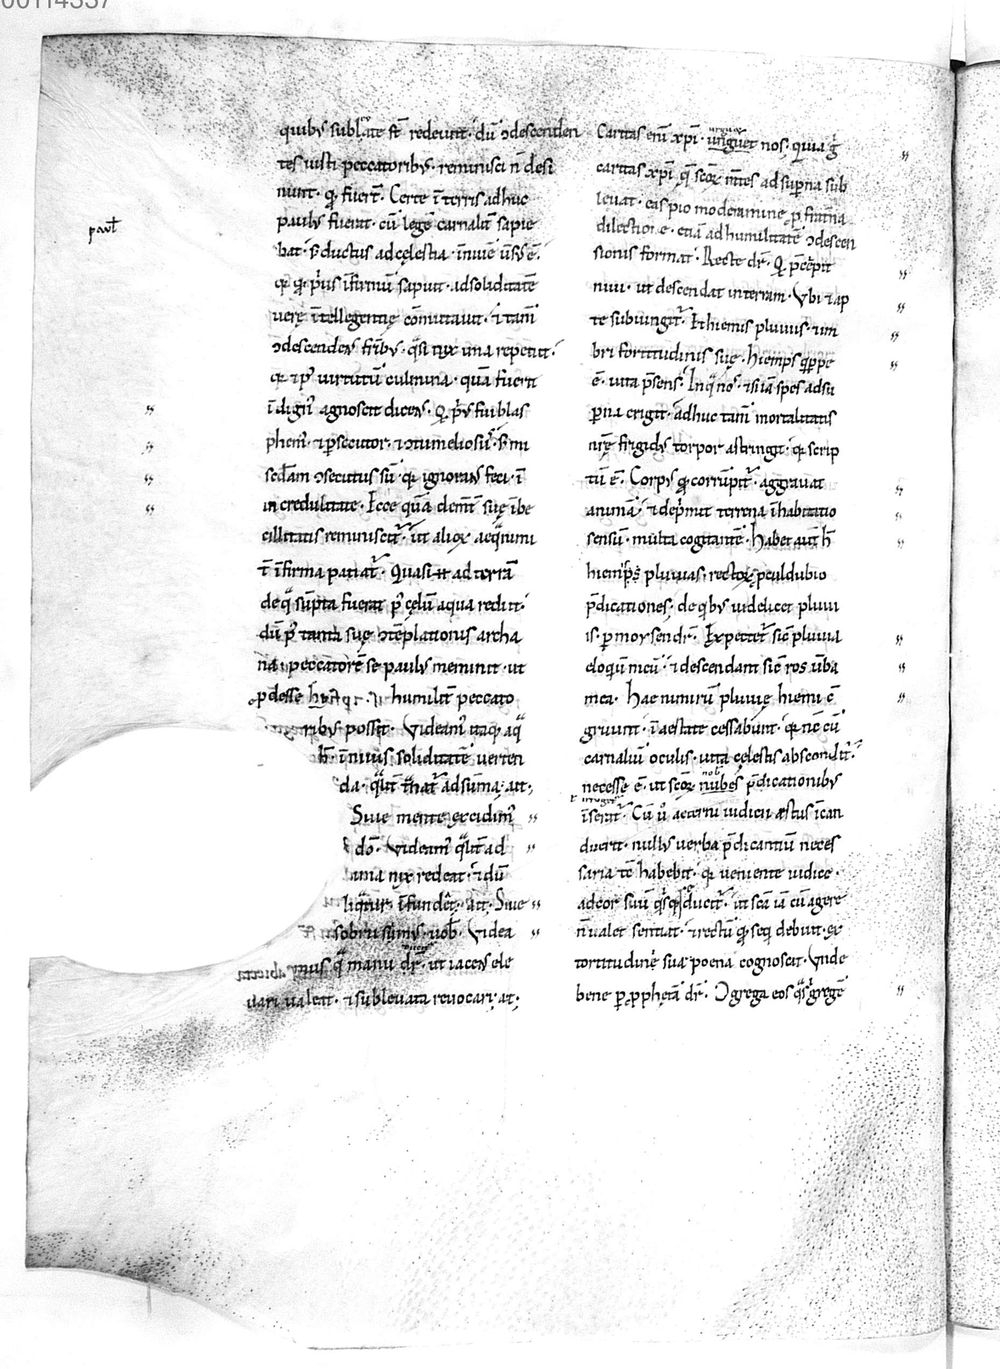 00114337
quibꝰ sublate st̄ redeunt. dū ꝯdescenden
tes iusti peccatoribꝰ. reminisci n̄ desi
nunt. qđ fuert̄. Certe ī terris adhuc
paulꝰ fuerat. cū legē carnalit̄ sapie
paul̄
bat. sꝫ ductus ad cęlestia.
qꝛ qđ pͥus īfirmū saꝑuit. ad soliditatē
uerę ītellegentię cōmutauit. & tam̄
ꝯdescendens frībꝰ. qͣsi nix una repetit.
qꝛ & pꝰ uirtutū culmina. quā fuerit
īdignꝰ agnoscit dicens. Qͥ pͥꝰ fui blas
phemꝰ. & ꝑsecutor. & ꝯtumeliosus. sꝫ mi
scđiam ꝯsecutus sū. qꝛ ignorans feci. ī
incredulitate. Ecce quā clemt̄ suę ībe
cillitatis reminiscit̄. ut alioꝝ aeqͣnimi
t̄ īfirma patiat̄. Quasi & ad terrā
de qͣ sūpta fuerat pꝰ cęlū aqua rediit.
dū pꝰ tanta suę ꝯtēplationis archa
na. peccatorē se paulꝰ meminit. ut
ꝓdesse humilit̄ peccato
ribꝰ possit. Videamꝰ itaqꝫ aqͣ
h̄ ī niuis soliditatē uerten
da. qͣlit̄ trahat̄ ad sūma. ait.
Siue mente excidimꝰ
dō. Videamꝰ qͣlit̄ ad
ima nix redeat. & dū
liqͣtur īfundet̄. ait. Siue
sobrii sumꝰ. uob̄. Videa
mus qͣ manu dr̄. ut iacens ele
uari ualeat. & subleuata reuocari. ait.
Caritas enī xp̄i. urguet nos. quia g̊
caritas xp̄i. quę scōꝝ m̄tes ad suꝑna sub
leuat. eas pio moderamine ꝓ fratn̄a
dilectione. etiā ad humilitatē ꝯdescen
sionis format. Recte dr̄. Qͥ p̄cepit
niui. ut descendat in terram. Vbi & ap
te subiungit̄. Et hiemis pluuiis. & im
bri fortitudinis suę. Hiemps quippe
ē. uita p̄sens. In qͣ nos. & si iā spes ad su
ꝑna erigit. adhuc tam̄ mortalitatis
nr̄ę frigidꝰ torpor astringit. qꝛ scrip
tū ē. Corpꝰ qđ corrūpit̄. aggrauat
animā. & dep̄mit terrena īhabitatio
sensū. multa cogitantē. Habet aut̄ h̄
hiemps pluuias. rectoꝝ ꝓculdubio
p̄dicationes. de qͥbꝰ uidelicet pluui
is. ꝑ moysen dr̄. Expectet̄ sic̄ pluuia
eloqͥū meū. & descendant sic̄ ros uba
mea. Hae nimirū pluuię hiemi ꝯ
gruunt. ī aestate cessabunt. qꝛ nc̄ cū
carnaliū oculis. uita cęlestis abscondit̄.
necesse ē. ut scōꝝ nob̄ p̄dicationibꝰ
īserat̄. Cū ů aeterni iudicii ęstus īcan
duerit. nullꝰ uerba p̄dicantiū neces
saria t̄c habebit. qꝛ ueniente iudice.
ad cor suū qͥsqͥs ducit̄. ut scā iā cū agere
n̄ ualet sentiat. & rectū qđ seqͥ debuit. ex
tortitudinē suae poena cognoscat. Vnde
bene ꝑ ꝓphetā dr̄. Ꝯgrega eos qͣsi gregē